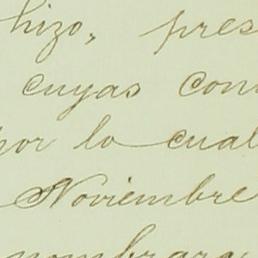 hizo, pres
cuyas con
por lo cual
Noviembre
nombrara